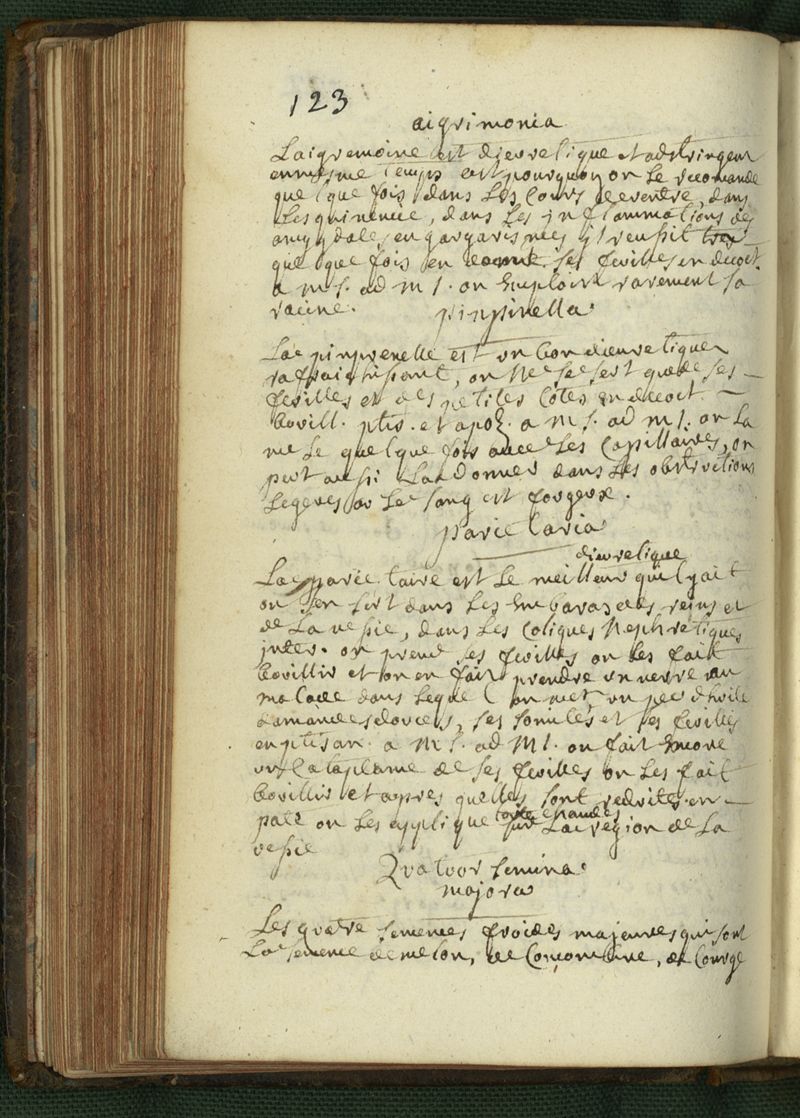 123
aigrimonia
Laigremoine est dieuretique et adstringeur
enmesme temps cest pourquoy on le recomande
quelque fois dans les Cours de ventre, dans
Lesquinencie, dans les inflammations des
amygdales, en gargarismes il reussit
quelque fois en ses feuilles en decoct.
a M j. ad M j. on Emploie rarement sa
racine.
pinpinella
La pinprenelle est un bon dieuretique
rafraichissant, on Ne se sert que de ses
feuilles et des petites Côtes en decoct.
bouill. ptis. et apoz. a M j. ad M j. on La
mele quelque fois avec les Capillaires, on
peut aussi La donner dans les obstructions
Legeres ou Le sang est
parietaria
dieuretique
La parietaire est Le meilleur quil y ait
on sen sert dans les Embaras des reins et
de La vessie, dans les Coliques Nephretiques
on prend ses feuilles on les fait
bouillir et on en fait prendre un verre au
malade dans Lequel on met un peu dhuile
damandes douces, ses et ses feuilles
en ptisan. a M j. ad M j. on fait Encore
un Cataplame de ses feuilles on Les fait
bouillir et apres quelles sont reduites en
pate on les applique sur La region de La
vessie
Quatuor semina
majora
Les quatre semences froides majeures qui sont
La semence de melon, de Concombre, de Courge